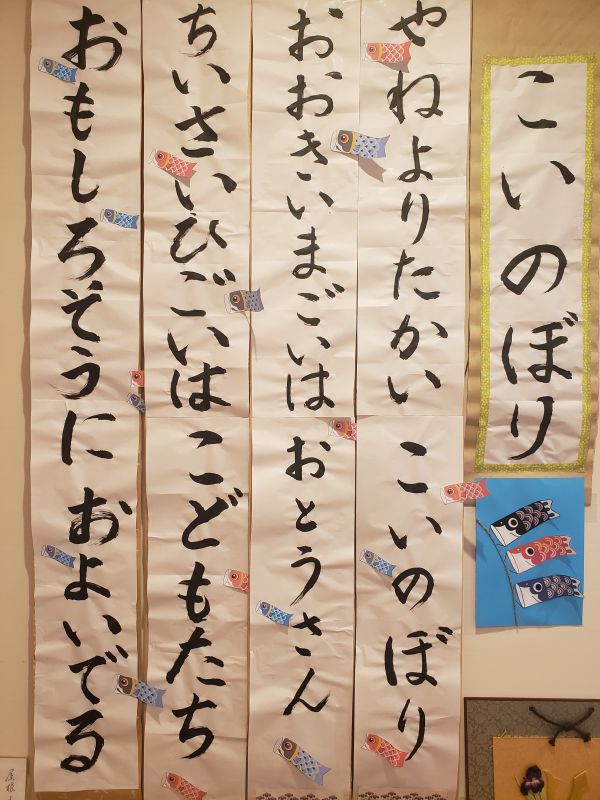 こいのぼり
やねよりたかい こいのぼり
おおきいまごいは おとうさん
ちいさいひごいは こどもたち
おもしろそうに およいでる
屋根